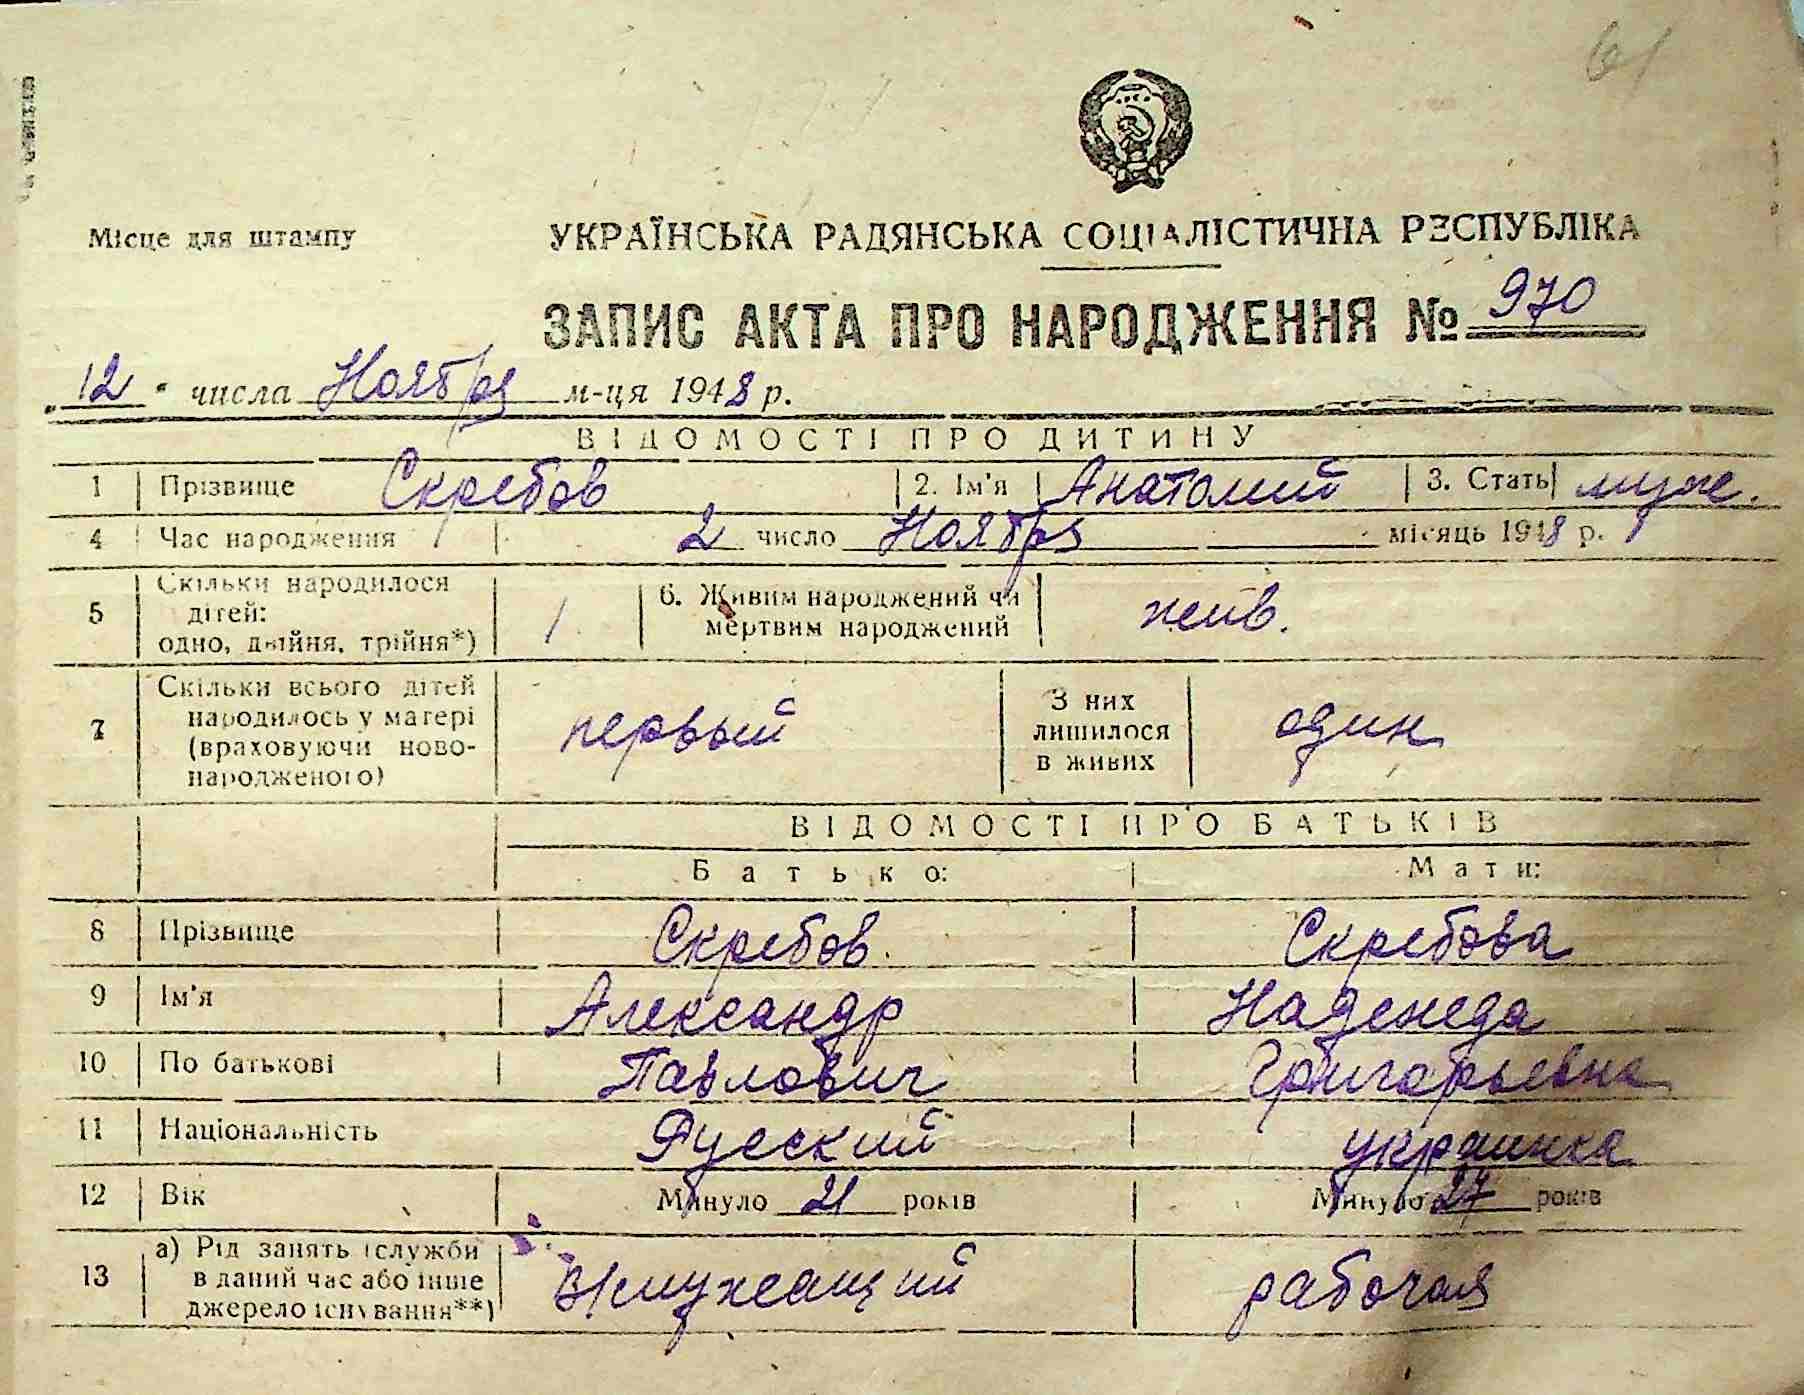 61
Місце для штампу
УКРАЇНСЬКА РАДЯНСЬКА СОЦІАЛІСТИЧНА РЕСПУБЛІКА
ЗАПИС АКТА ПРО НАРОДЖЕННЯ № 970
„12" числа Ноября м-ця 1948 р.
ВІДОМОСТІ ПРО ДИТИНУ
1 Прізвище Скребов 2. Ім'я Анатолий 3. Стать муж.
4 Час народження 2 число Ноября місяць 1948 р.
5 Скільки народилося дітей: одно, двійня, трійня*) 1 6. Живим народжений чи мертвим народжений жив.
7 Скільки всього дітей народилось у матері (враховуючи новонародженого) первый З них лишилося в живих один
ВІДОМОСТІ ПРО БАТЬКІВ
Батько: Мати:
8 Прізвище Скребов. Скребова
9 Ім'я Александр Надежда
10 По батькові Павлович Григорьевна
11 Національність Русский украинка
12 Вік Минуло 21 років Минуло 27 років
13 а) Рід занять (служби в даний час або інше джерело існування**) рабочая